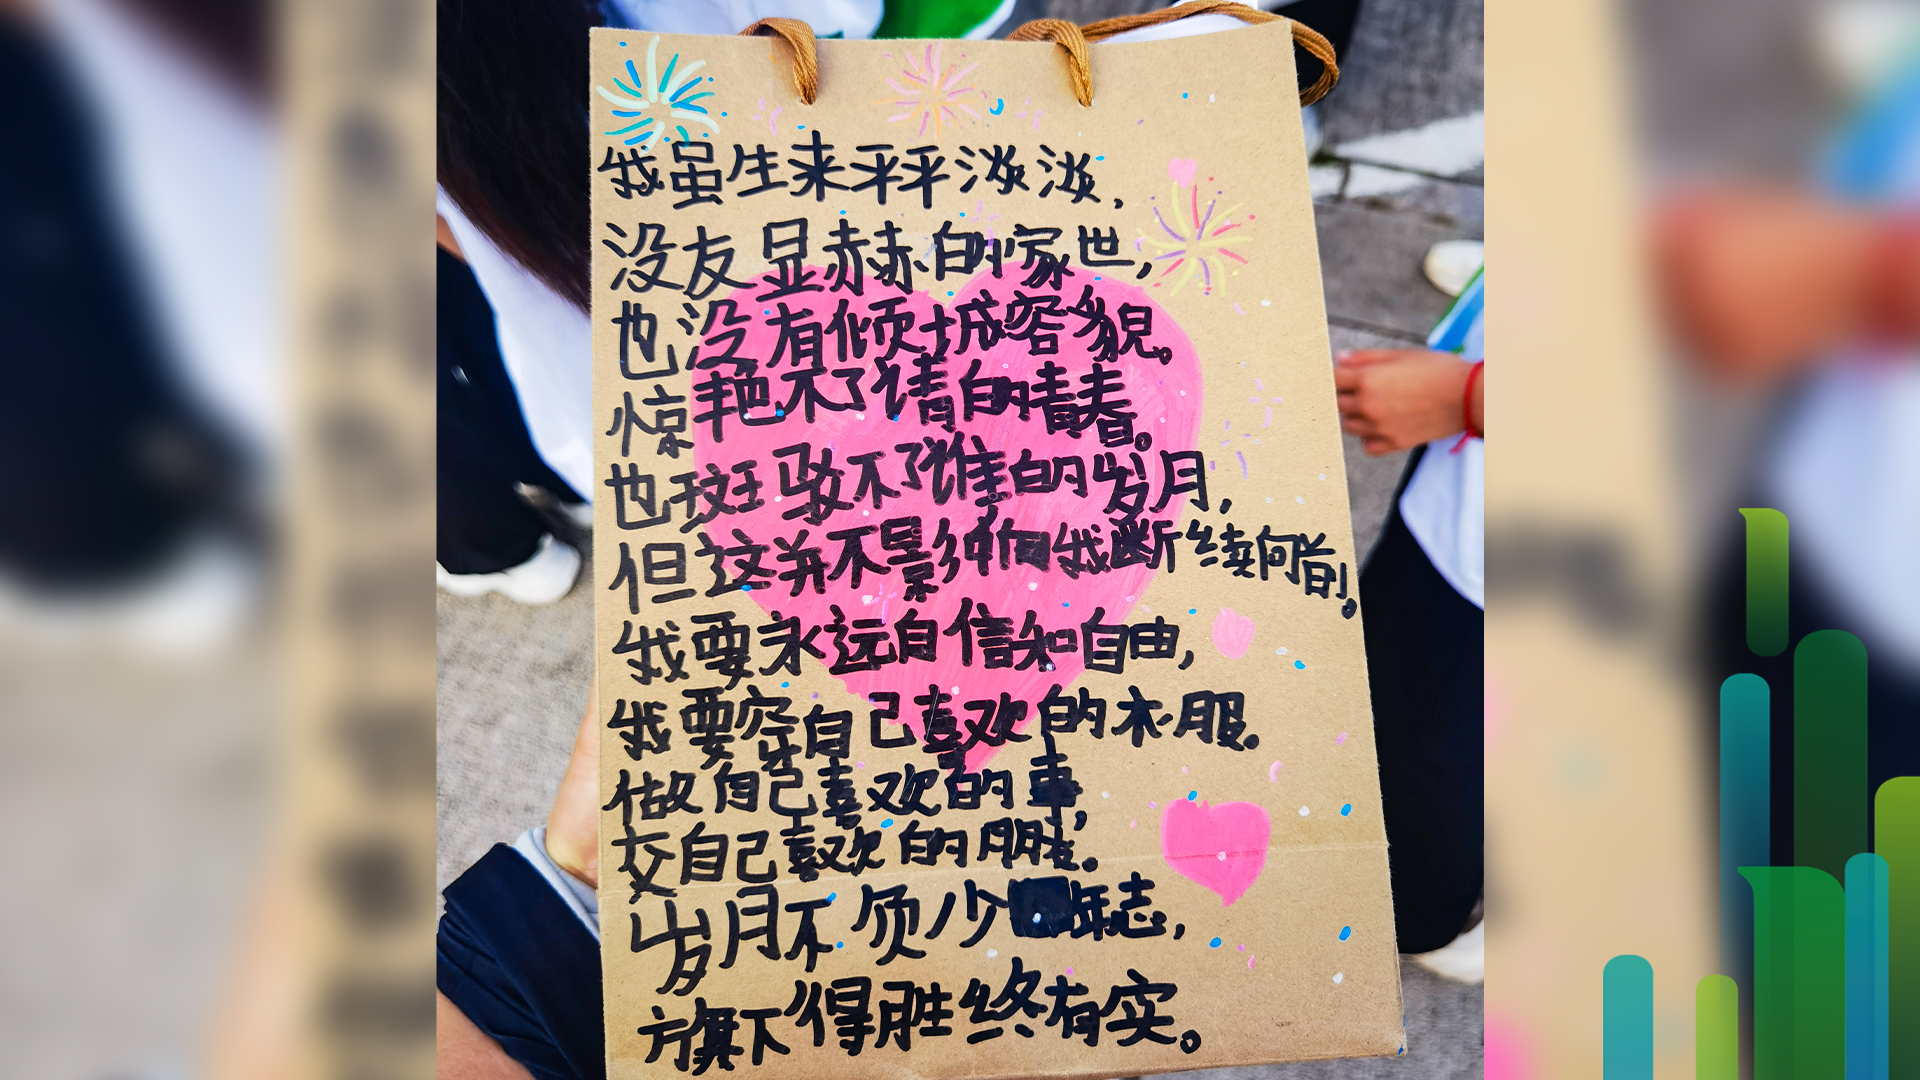 我虽生来平平淡淡,
没友显赫的家世,
也没有倾城容貌。
惊艳不了谁的青春。
也斑驳不了谁的岁月,
但这并不影响我断续向前。
我要永远自信和自由,
我要穿自己喜欢的衣服。
做自己喜欢的事,
交自己喜欢的朋友。
岁月不负少年志,
旗下得胜终有实。